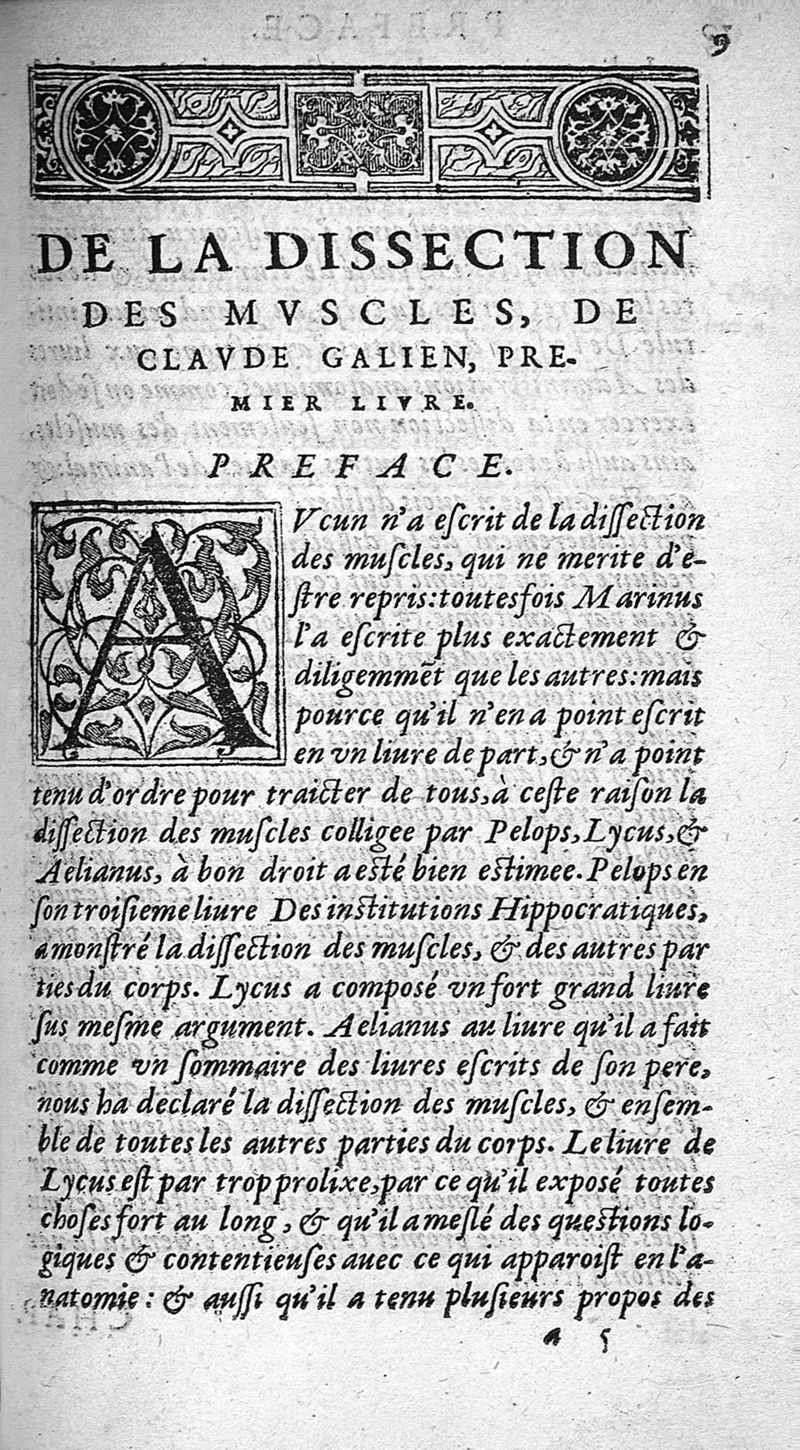 9
DE LA DISSECTION
DES MVSCLES, DE
CLAVDE GALIEN, PRE-
MIER LIVRE.
PREFACE.
AVcun n'a eſcrit de la diſſection
des muſcles, qui ne merite d'e-
ſtre repris: toutesfois Marinus
l'a eſcrite plus exactement &
diligemmẽt que les autres: mais
pource qu'il n'en a point eſcrit
en vn liure de part, & n'a point
tenu d'ordre pour traicter de tous, à ceſte raiſon la
diſſection des muſcles colligee par Pelops, Lycus, &
Aelianus, à bon droit a eſté bien eſtimee. Pelops en
ſon troiſieme liure Des inſtitutions Hippocratiques,
a monſtré la diſſection des muſcles, & des autres par
ties du corps. Lycus a compoſé vn fort grand liure
ſus meſme argument. Aelianus au liure qu'il a fait
comme vn ſommaire des liures eſcrits de ſon pere,
nous ha declaré la diſſection des muſcles, & enſem-
ble de toutes les autres parties du corps. Le liure de
Lycus eſt par trop prolixe, par ce qu'il expoſé toutes
choſes fort au long, & qu'il a meſlé des queſtions lo-
giques & contentieuſes auec ce qui apparoiſt en l'a-
natomie: & auſſi qu'il a tenu pluſieurs propos des
a 5